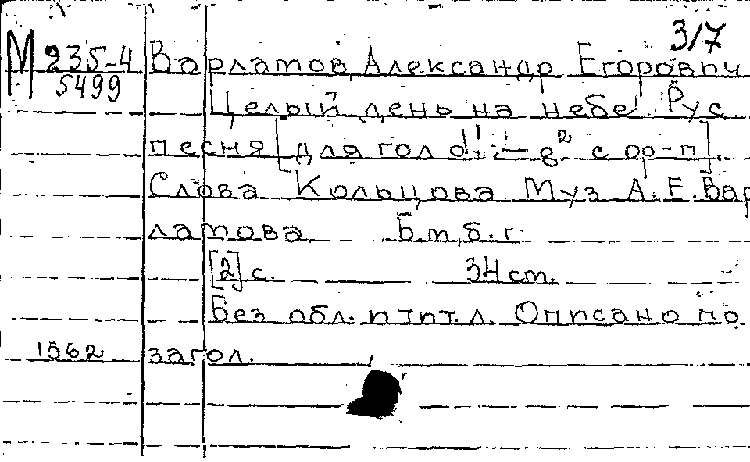 3/7
М 235-4 Варламов, Александр Егорович
5499 Целый день на небе! Рус
песня [для гол d¹ ÷ g² с фп].
Слова Кольцова Муз А. Е. Вар
ламова. Б.м,б.г.
[2] с. 34 cm.
Без обл. и тит.л. Описано по
1562 загол.